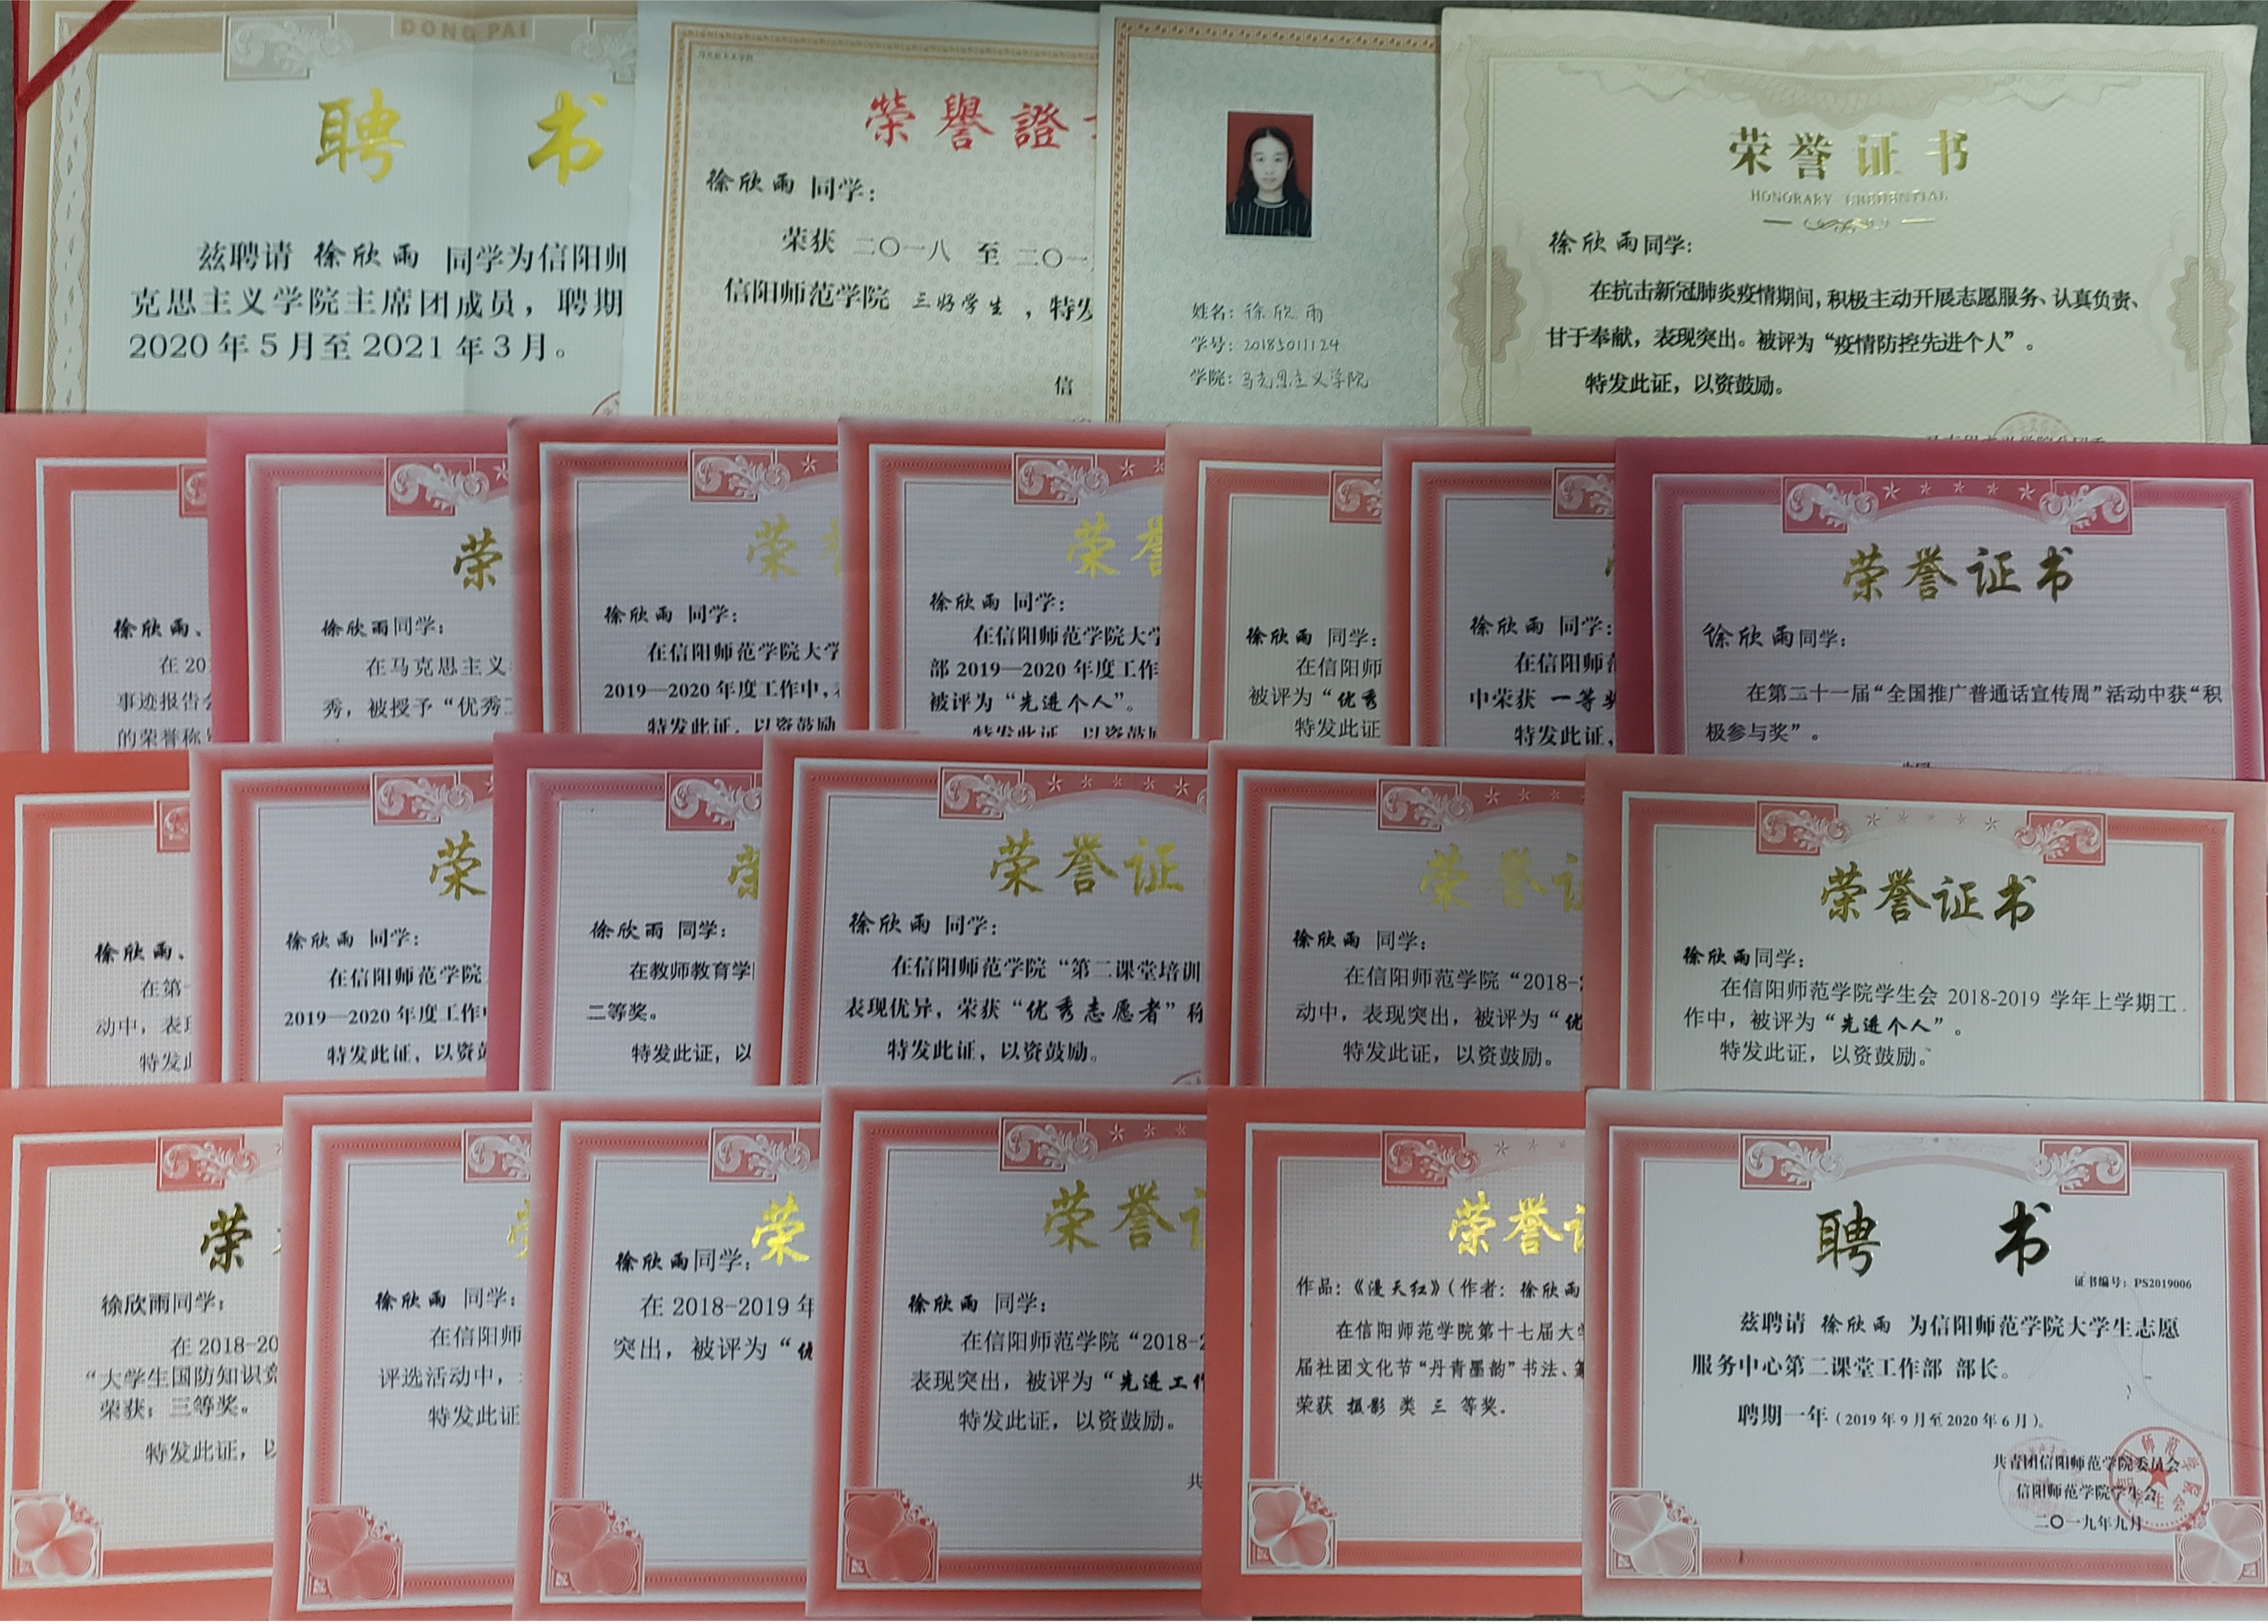 DONG PAI
聘 书
兹聘请 徐欣雨 同学为信阳师
克思主义学院主席团成员，聘期
2020年5月至2021年3月。
马克思主义学院
榮譽證
徐欣雨 同学：
荣获 二〇一八 至 二〇一
信阳师范学院 三好学生 ，特发
信
姓名：徐欣雨
学号：20185011124
学院：马克思主义学院
荣誉证书
HONORARY CREDENTIAL
徐欣雨同学：
在抗击新冠肺炎疫情期间，积极主动开展志愿服务、认真负责、
甘于奉献，表现突出。被评为“疫情防控先进个人”。
特发此证，以资鼓励。
徐欣雨、
在 20
事迹报告会
的荣誉称号
荣
徐欣雨同学：
在马克思主义
秀，被授予“优秀
荣
徐欣雨 同学：
在信阳师范学院大学
2019—2020 年度工作中，
特发此证，以资鼓励
荣誉
徐欣雨 同学：
在信阳师范学院大学
部 2019—2020 年度工作
被评为“先进个人”。
特发此证，以资鼓励
徐欣雨 同学：
在信阳师
被评为“优秀
特发此证
徐欣雨 同学：
在信阳师范
中荣获 一等奖
特发此证，
荣誉证书
徐欣雨同学：
在第二十一届“全国推广普通话宣传周”活动中获“积
极参与奖”。
徐欣雨、
在第
动中，表现
特发此
荣
徐欣雨 同学：
在信阳师范学院
2019—2020 年度工作
特发此证，以资鼓
荣
徐欣雨 同学：
在教师教育学
二等奖。
特发此证，以
荣誉证
徐欣雨 同学：
在信阳师范学院“第二课堂培训
表现优异，荣获“优秀志愿者”称
特发此证，以资鼓励。
荣誉证
徐欣雨 同学：
在信阳师范学院“2018-2
动中，表现突出，被评为“优
特发此证，以资鼓励。
荣誉证书
徐欣雨同学：
在信阳师范学院学生会 2018-2019 学年上学期工
作中，被评为“先进个人”。
特发此证，以资鼓励。
荣
徐欣雨同学：
在 2018-20
“大学生国防知识竞
荣获：三等奖。
特发此证，以
徐欣雨 同学：
在信阳师
评选活动中，
特发此证
荣
徐欣雨同学：
在 2018-2019 年
突出，被评为“优
荣誉证
徐欣雨 同学：
在信阳师范学院“2018-2
表现突出，被评为“先进工作
特发此证，以资鼓励。
共
荣誉证
作品：《漫天红》（作者：徐欣雨
在信阳师范学院第十七届大学
届社团文化节“丹青墨韵”书法、篆
荣获 摄影 类 三 等奖.
聘 书
证书编号：PS2019006
兹聘请 徐欣雨 为信阳师范学院大学生志愿
服务中心第二课堂工作部 部长。
聘期一年（2019年9月至2020年6月）。
共青团信阳师范学院委员会
信阳师范学院学生会
二〇一九年九月